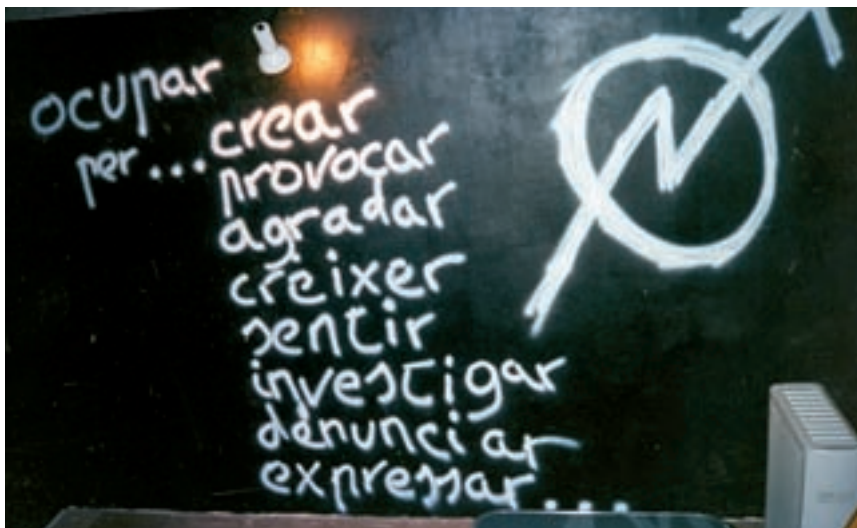 ocupar
per... crear
provocar
agradar
créixer
sentir
investigar
denunciar
expressar...